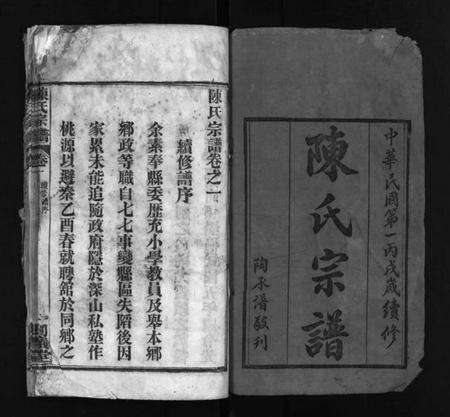 中華民國第一丙戌歲續修
陳氏宗譜
陶永譜敬刊
陳氏宗譜卷之一
續修譜序
余素奉縣委歷充小學教員及舉本鄉
鄉政等職自七七事變縣區失陷後因
家累未能追隨政府隱於深山私塾作
桃源以避秦乙酉春就聘館於同鄉之
陳氏宗譜